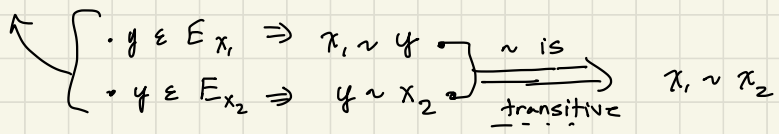 • y ε E_{x_1} ⇒ x_1 ~ y ~ is
• y ε E_{x_2} ⇒ y ~ x_2 transitive x_1 ~ x_2